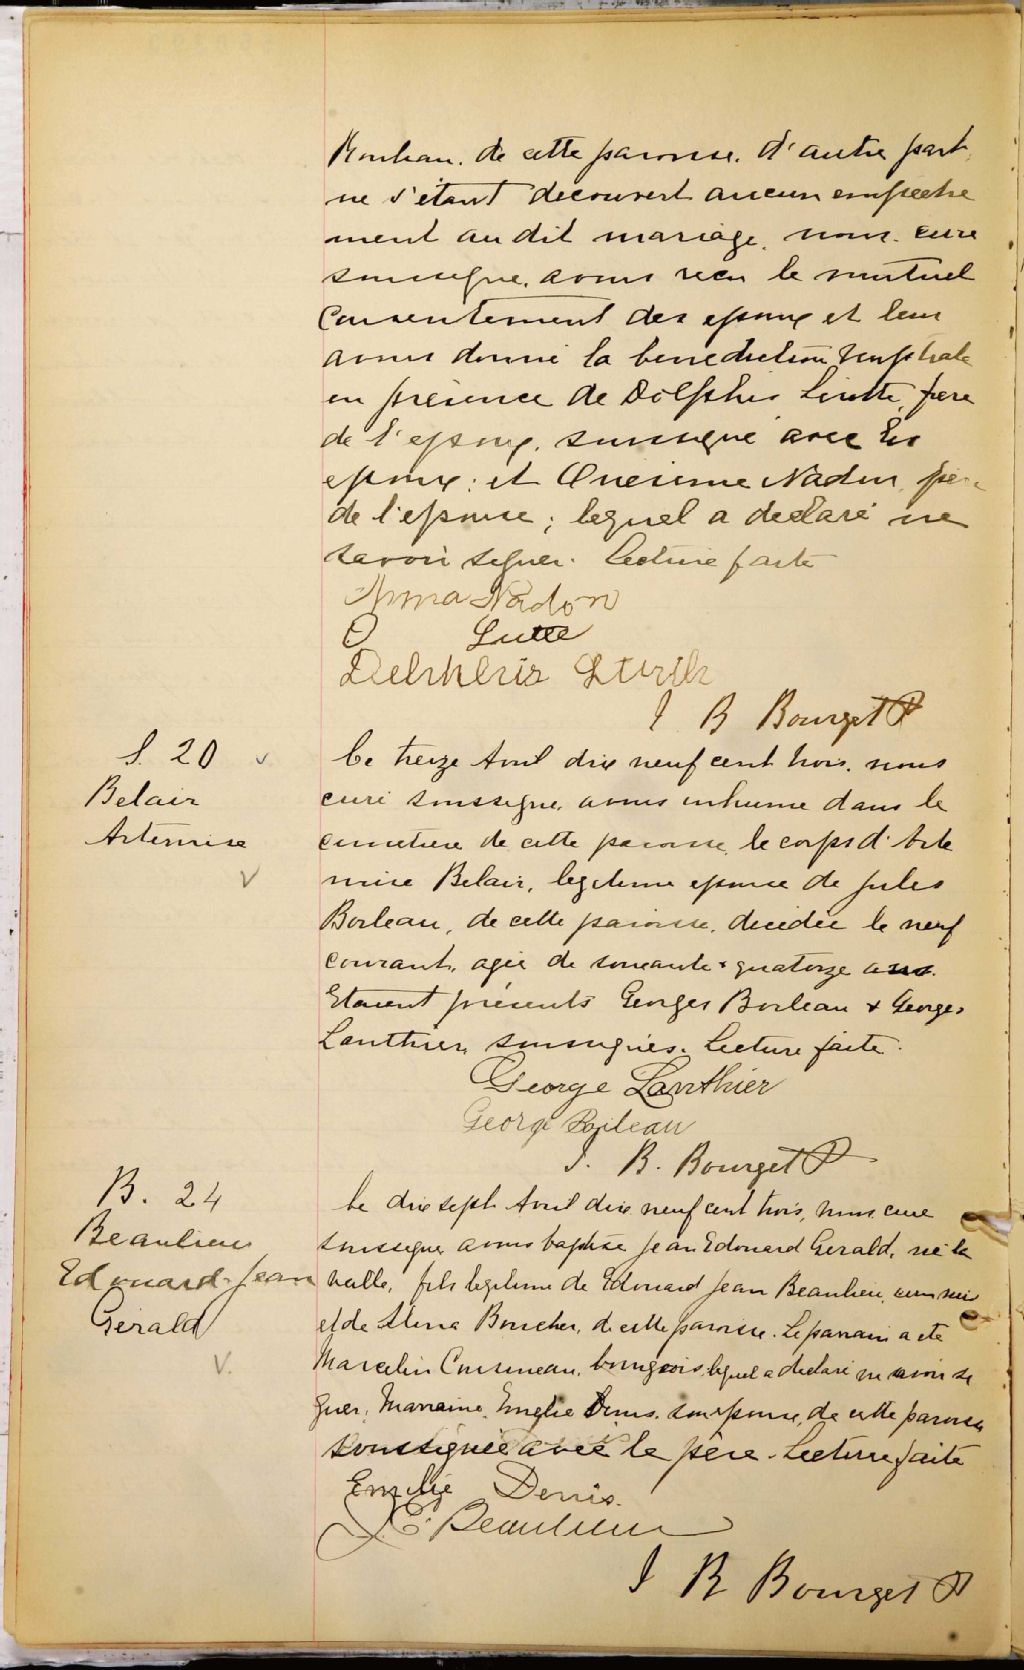 de cette paroisse. d'autre part,
ne s'étant decouvert aucun empeche
ment au dit mariage, nous. cure
soussigne, avons recu le mutuel
Consentement des epoux et leur
avons donne la benediction nuptiale
en présence de Dolphis frere
de l'epoux, soussigne avec les
epoux; et Onesime Nadon, pere
de l'epouse; lequel a declaré ne
savoir signer. Lecture faite
Anna Nadon
O
I B Bourget P
S. 20
Belair
Artemise
Le treize Avril dix neuf cent trois, nous
curé soussigne, avons inhume dans le
cimetiere de cette paroisse, le corps d'Arte
mise Belair, legitime epouse de Jules
Boileau, de cette paroisse, decédée le neuf
courant, agée de soixante & quatorze ans.
Etaient présents Georges Boileau & Georges
Lanthier, soussignés. Lecture faite.
George Lanthier
George Boileau
J. B. Bourget P
B. 24
Beaulieu
Edouard-Jean
Gérald
V.
Le dix sept Avril dix neuf cent trois, nous cure
soussigne, avons baptise Jean Edouard Gerald, né la
veille, fils legitime de Edouard Jean Beaulieu, commis
et de Boucher, de cette paroisse. Le parrain a ete
Marcelin bourgeois, lequel a declaré ne savoir si
gner, Marraine, Emelie Denis, son epouse, de cette paroisse
soussignée avec le père. Lecture faite
Emilie Denis.
J. E. Beaulieu
I B Bourget P